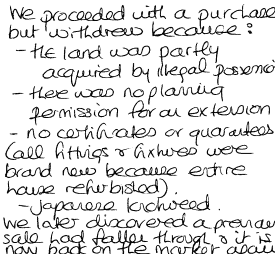 We proceeded with a purchase
but withdrew because :
- the land was partly
acquired by illegal possession
- there was no planning
permission for an extension
- no certificates or guarantees
(all fittings & fixtures were
brand new because entire
house refurbished).
- Japanese knotweed.
We later discovered a previous
sale had fallen through & it is
now back on the market again